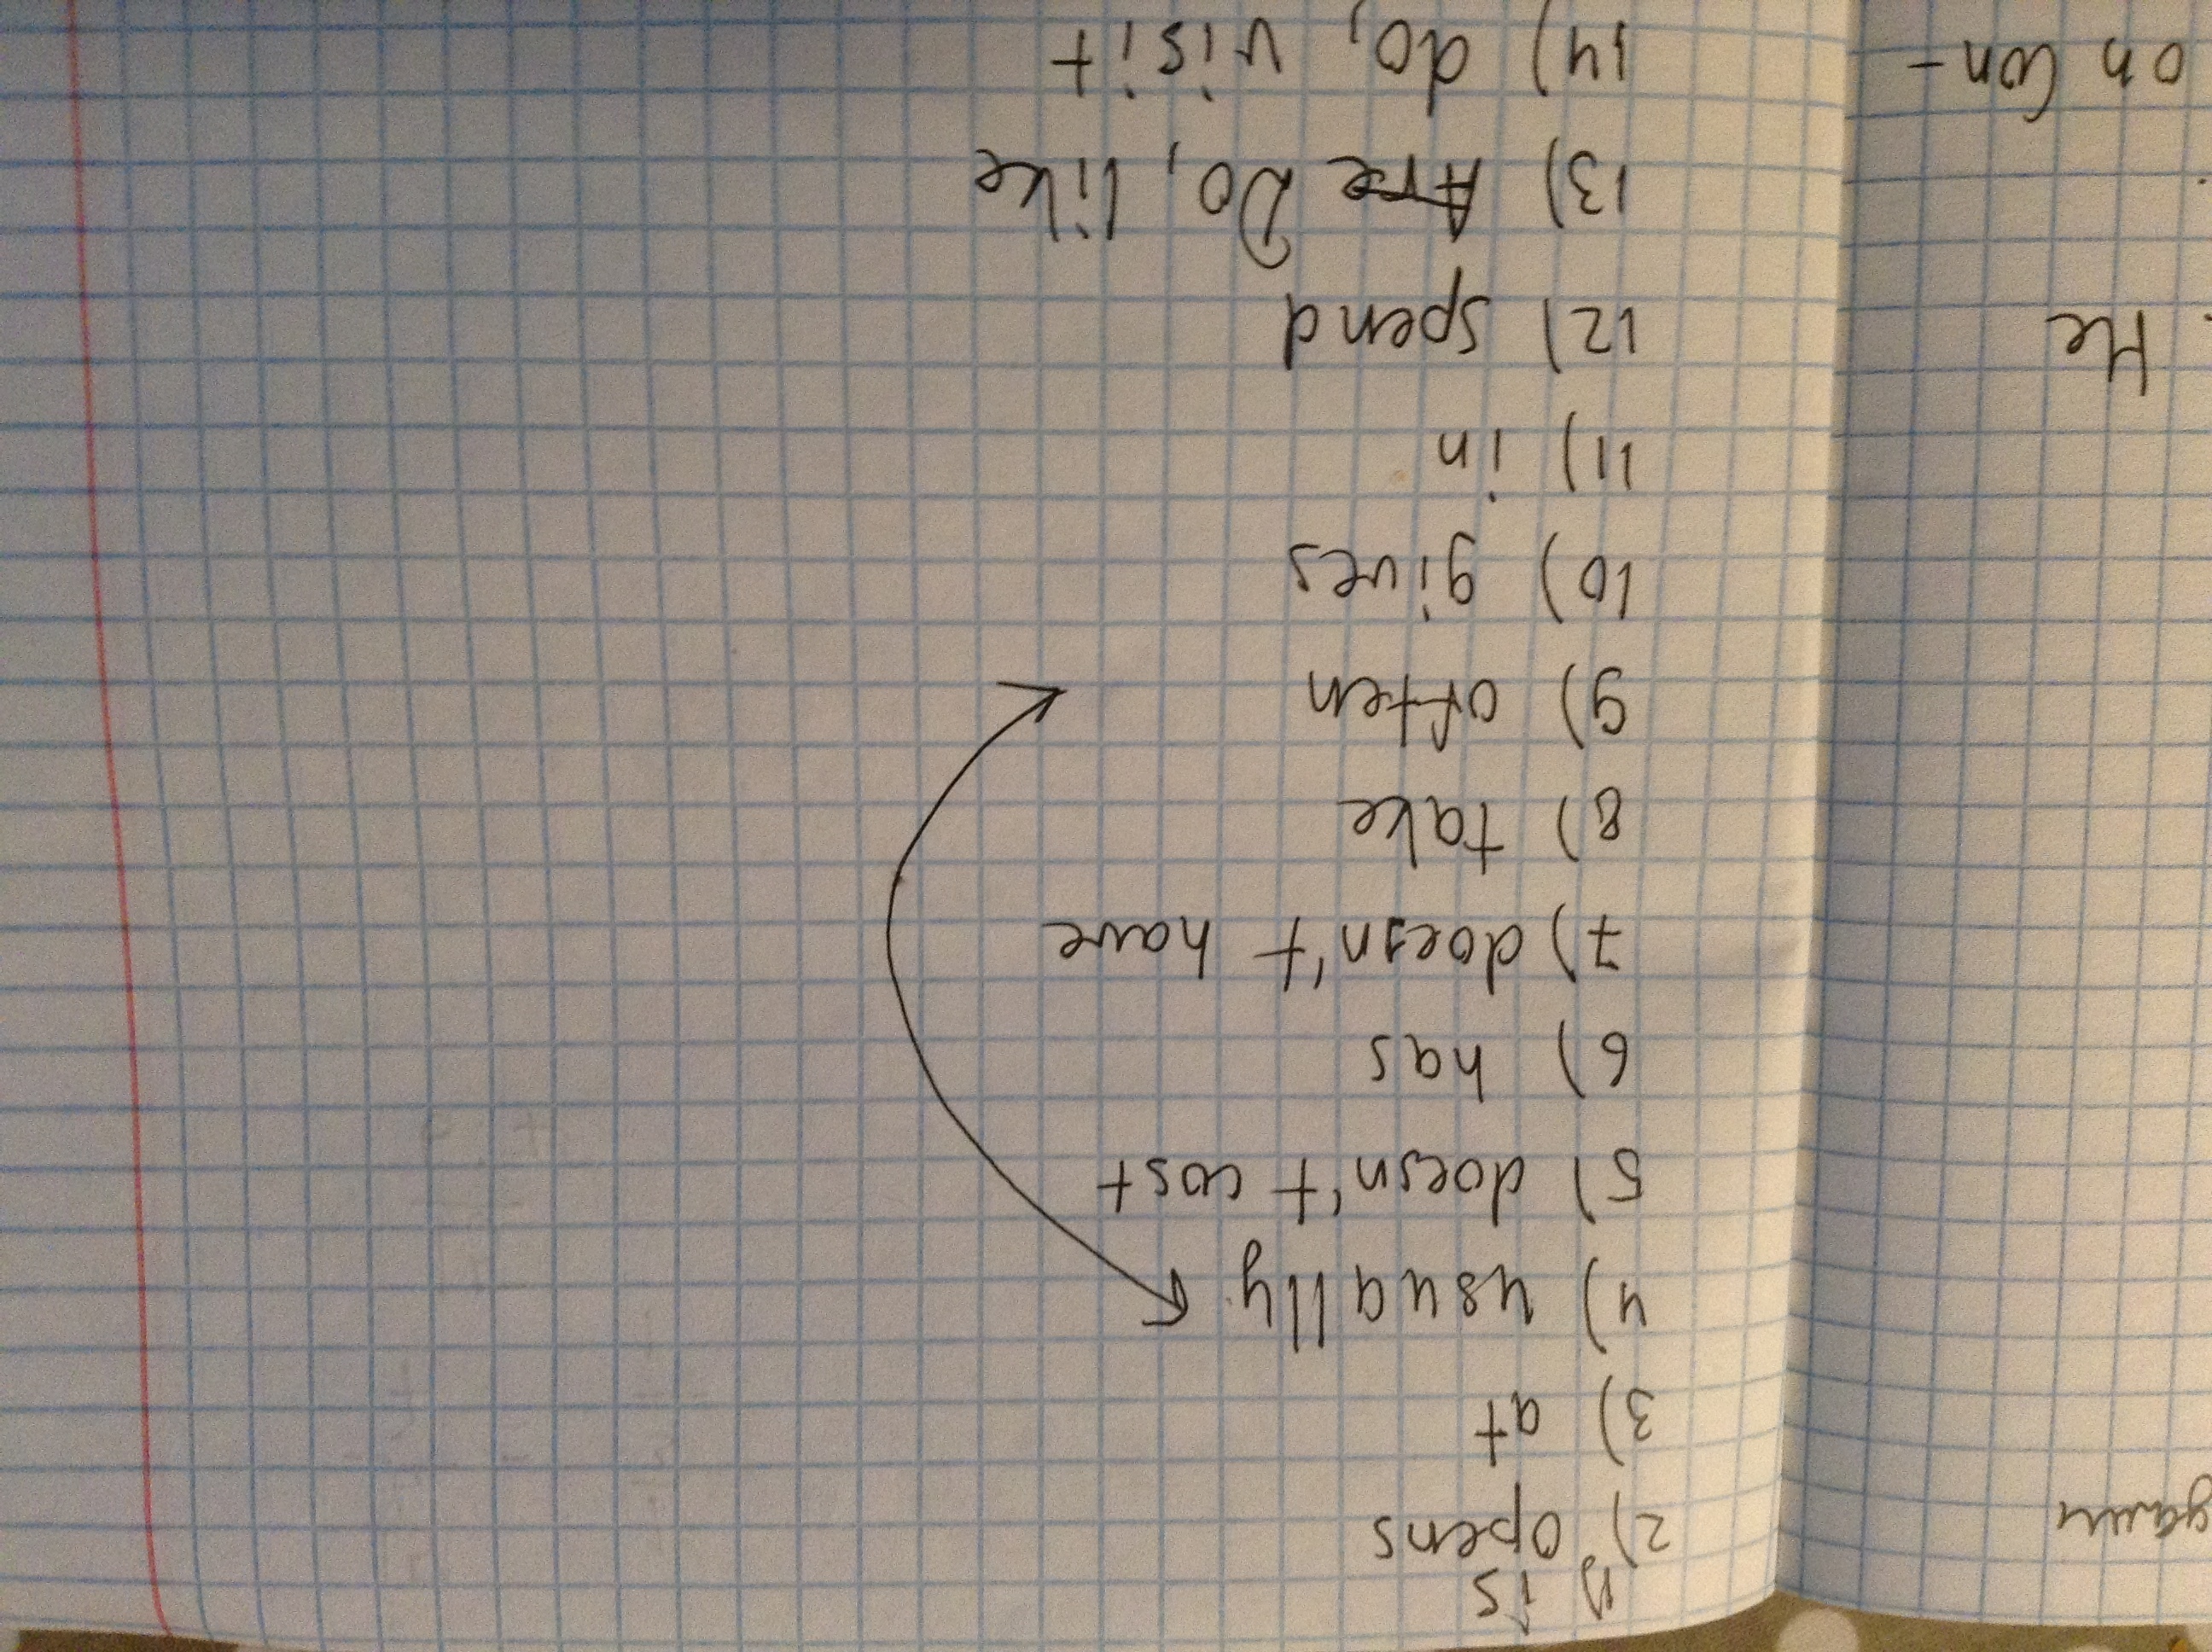 He
on Con-
1) is
2) opens
3) at
4) usually
5) doesn't cost
6) has
7) doesn't have
8) take
9) often
10) gives
11) in
12) spend
13) Are Do, like
14) do, visit